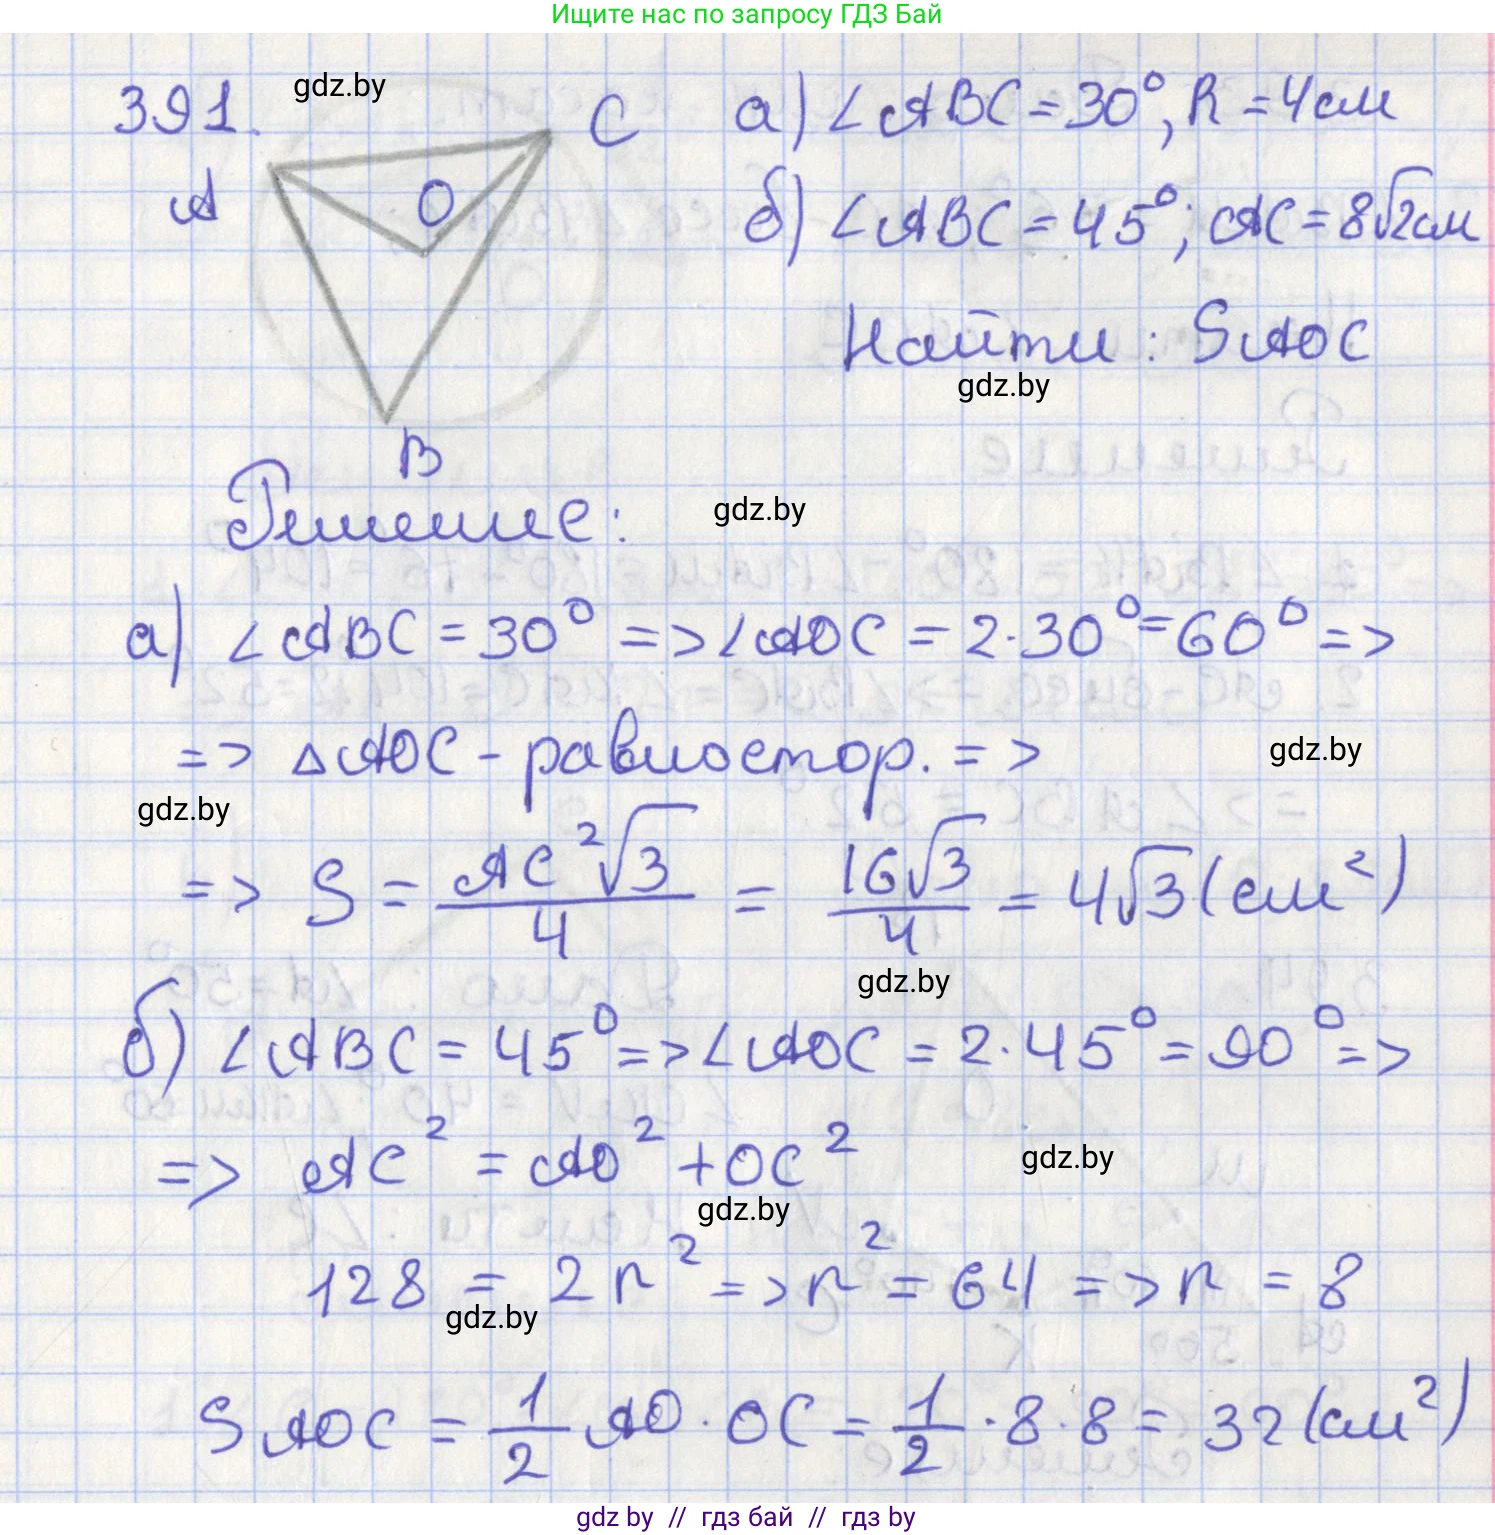 Ищите нас по запросу ГДЗ Бай
391.
gdz.by
C
A
O
B
а) ∠ABC = 30°, R = 4см
б) ∠ABC = 45°; AC = 8√2см
Найти: SAOC
gdz.by
Решение:
gdz.by
а) ∠ABC = 30° => ∠AOC = 2·30° = 60° =>
=> △AOC - равностор. =>
gdz.by
gdz.by
=> S = AC²√3/4 = 16√3/4 = 4√3 (см²)
gdz.by
б) ∠ABC = 45° => ∠AOC = 2·45° = 90° =>
=> AC² = AO² + OC²
gdz.by
gdz.by
128 = 2r² => r² = 64 => r = 8
gdz.by
SAOC = 1/2 AO · OC = 1/2 · 8 · 8 = 32 (см²)
gdz by // гдз бай // гдз by